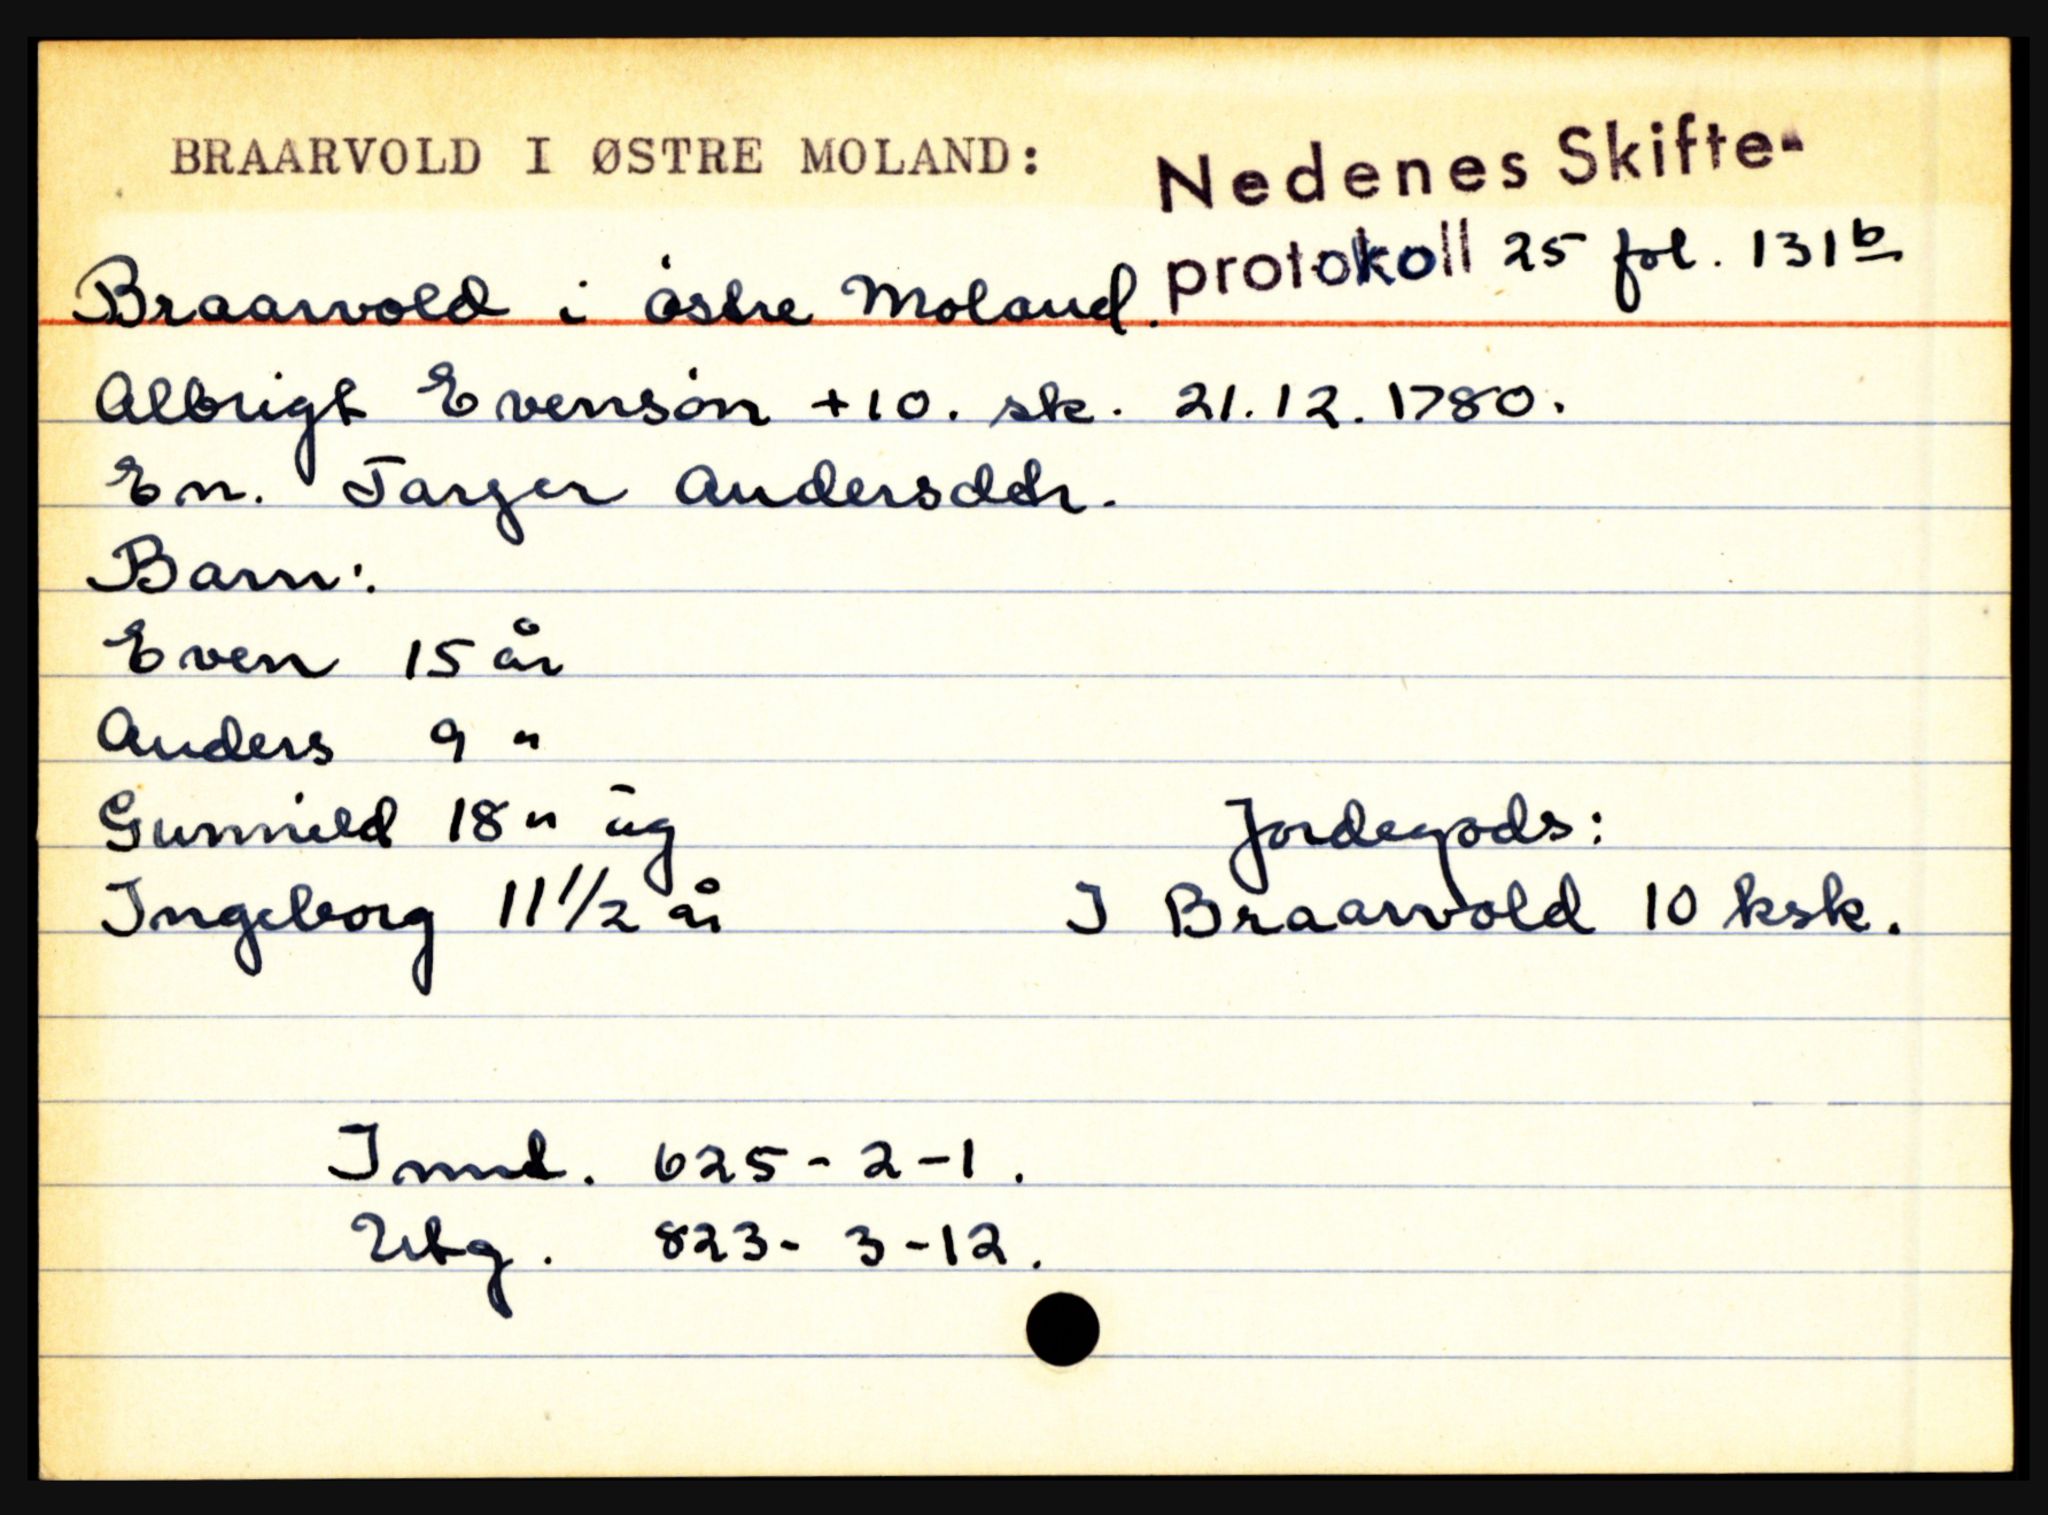 BRAARVOLD I ØSTRE MOLAND:
Nedenes Skifte-
protokoll 25 fol. 131b
Braarvold i östre Moland.
Albrigt Evensön +10. sk. 21.12.1780.
En. Tarjer Andersdtr.
Barn:
Even 15 år
Anders 9 "
Gunnild 18 " ug
Jordegods:
Ingeborg 11 1/2 år
I Braarvold 10 ksk.
Innt. 625 - 2 - 1.
Utg. 823 - 3 - 12.